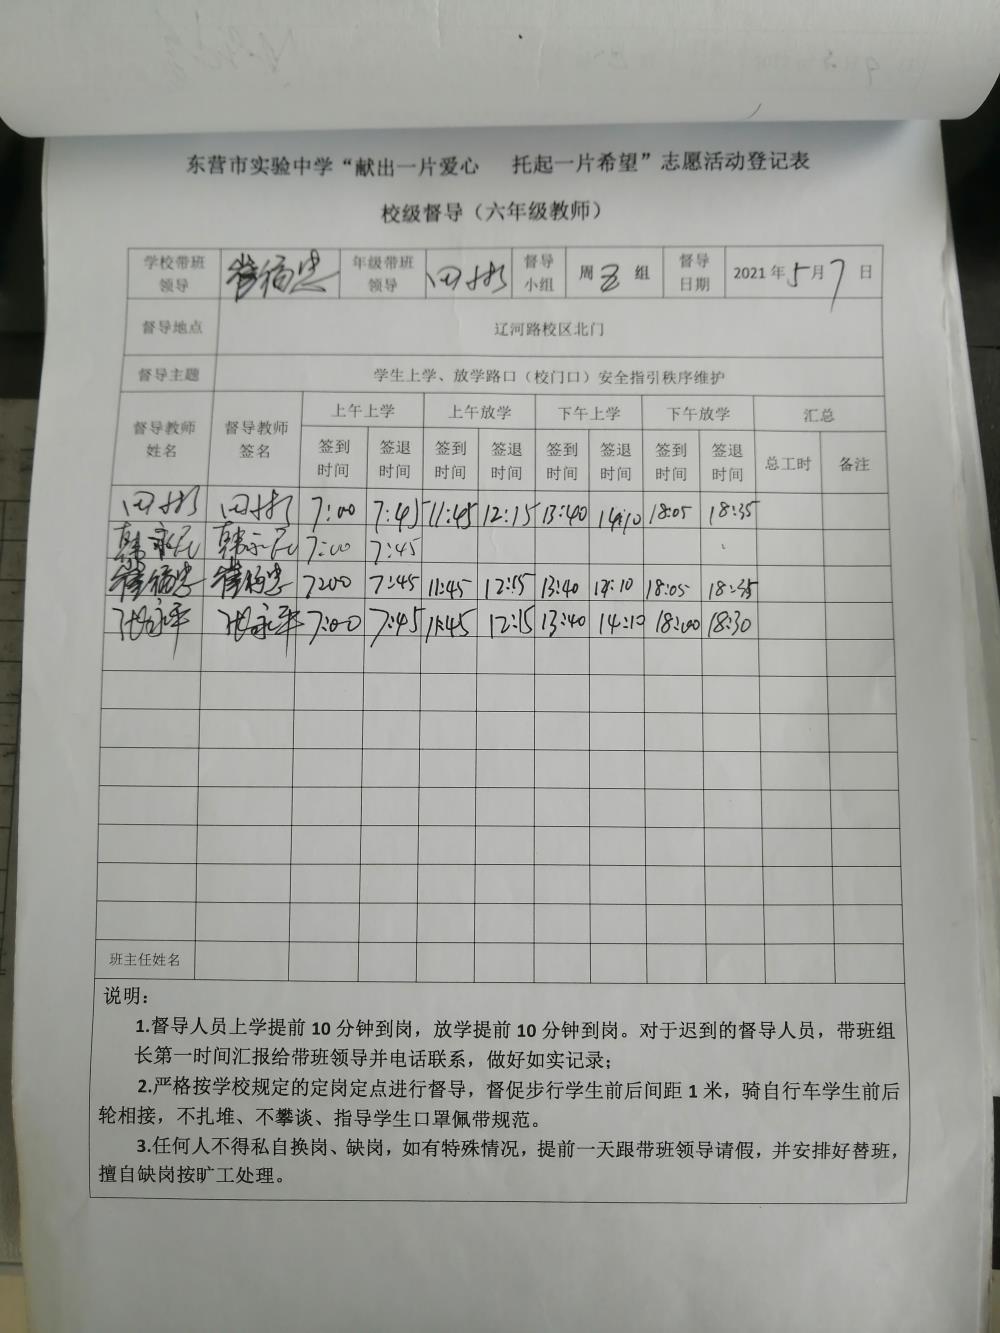 东营市实验中学“献出一片爱心 托起一片希望”志愿活动登记表
校级督导（六年级教师）
学校带班领导 崔福忠 年级带班领导 田彬 督导小组 周五组 督导日期 2021年5月7日
督导地点 辽河路校区北门
督导主题 学生上学、放学路口（校门口）安全指引秩序维护
督导教师姓名 督导教师签名 上午上学 上午放学 下午上学 下午放学 汇总
签到时间 签退时间 签到时间 签退时间 签到时间 签退时间 签到时间 签退时间 总工时 备注
田彬 田彬 7:00 7:45 11:45 12:15 13:40 14:10 18:05 18:35
韩永民 韩永民 7:00 7:45
崔福忠 崔福忠 7:00 7:45 11:45 12:15 13:40 14:10 18:05 18:35
张永平 张永平 7:00 7:45 11:45 12:15 13:40 14:10 18:00 18:30
班主任姓名
说明：
1.督导人员上学提前10分钟到岗，放学提前10分钟到岗。对于迟到的督导人员，带班组
长第一时间汇报给带班领导并电话联系，做好如实记录；
2.严格按学校规定的定岗定点进行督导，督促步行学生前后间距1米，骑自行车学生前后
轮相接，不扎堆、不攀谈、指导学生口罩佩带规范。
3.任何人不得私自换岗、缺岗，如有特殊情况，提前一天跟带班领导请假，并安排好替班，
擅自缺岗按旷工处理。